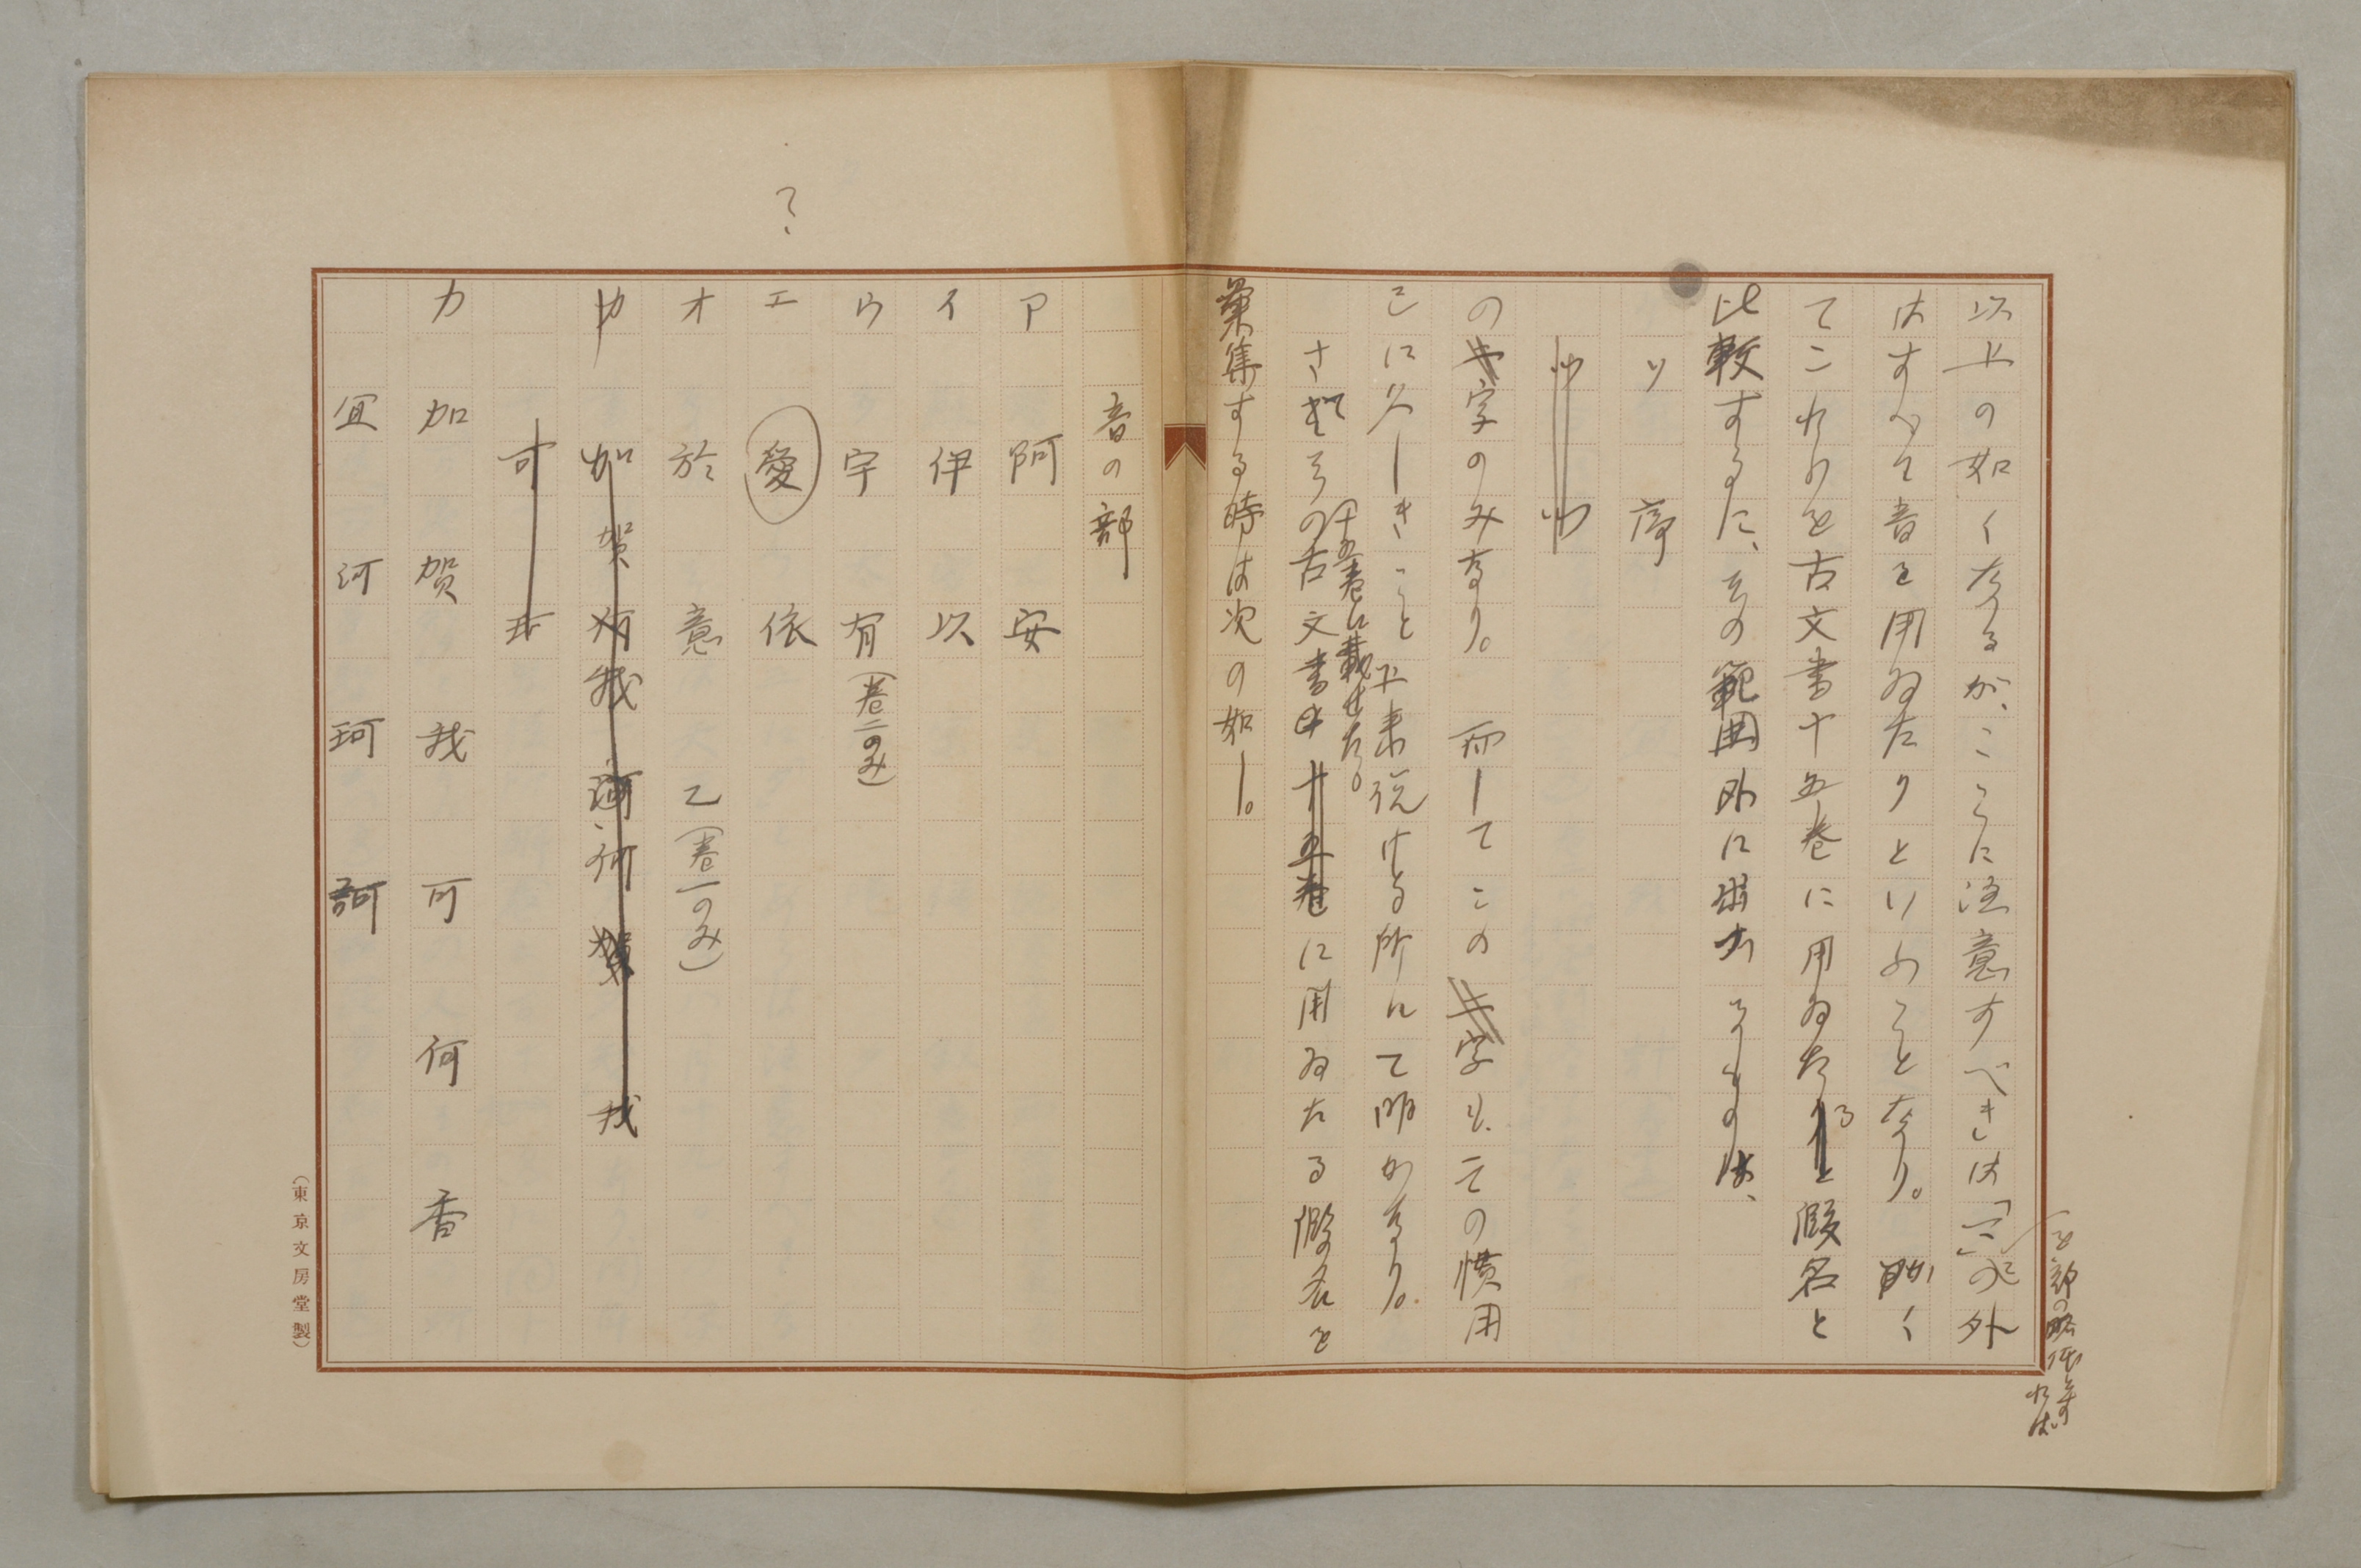 以上の如くなるが、ここに注意すべきは「ニ」の外
を部の略体とすれば
はすべて音を用ゐたりといふことなり。助く
てこれらを古文書十五巻に用ゐたると假名と
比較するに、その範囲外に出づるものは、
ツ 㴑
の字のみなり。而してこの字もその慣用
已に久しきこと上来説ける所にて明かなり。
さてその古文書十五巻に載せたる
に用ゐたる假名を
彙集する時は次の如し。
音の部
ア 阿 安
イ 伊 以
ウ 宇 有(巻二のみ)
?
エ 愛 依
オ 於 意 乙(巻一のみ)
カ 加 賀 我 可 何 香
宜 河 珂 訶
(東京文房堂製)